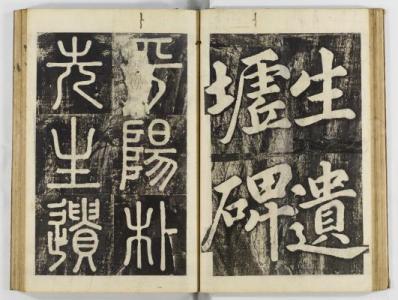 生遺
墟碑
平陽朴
先生遺